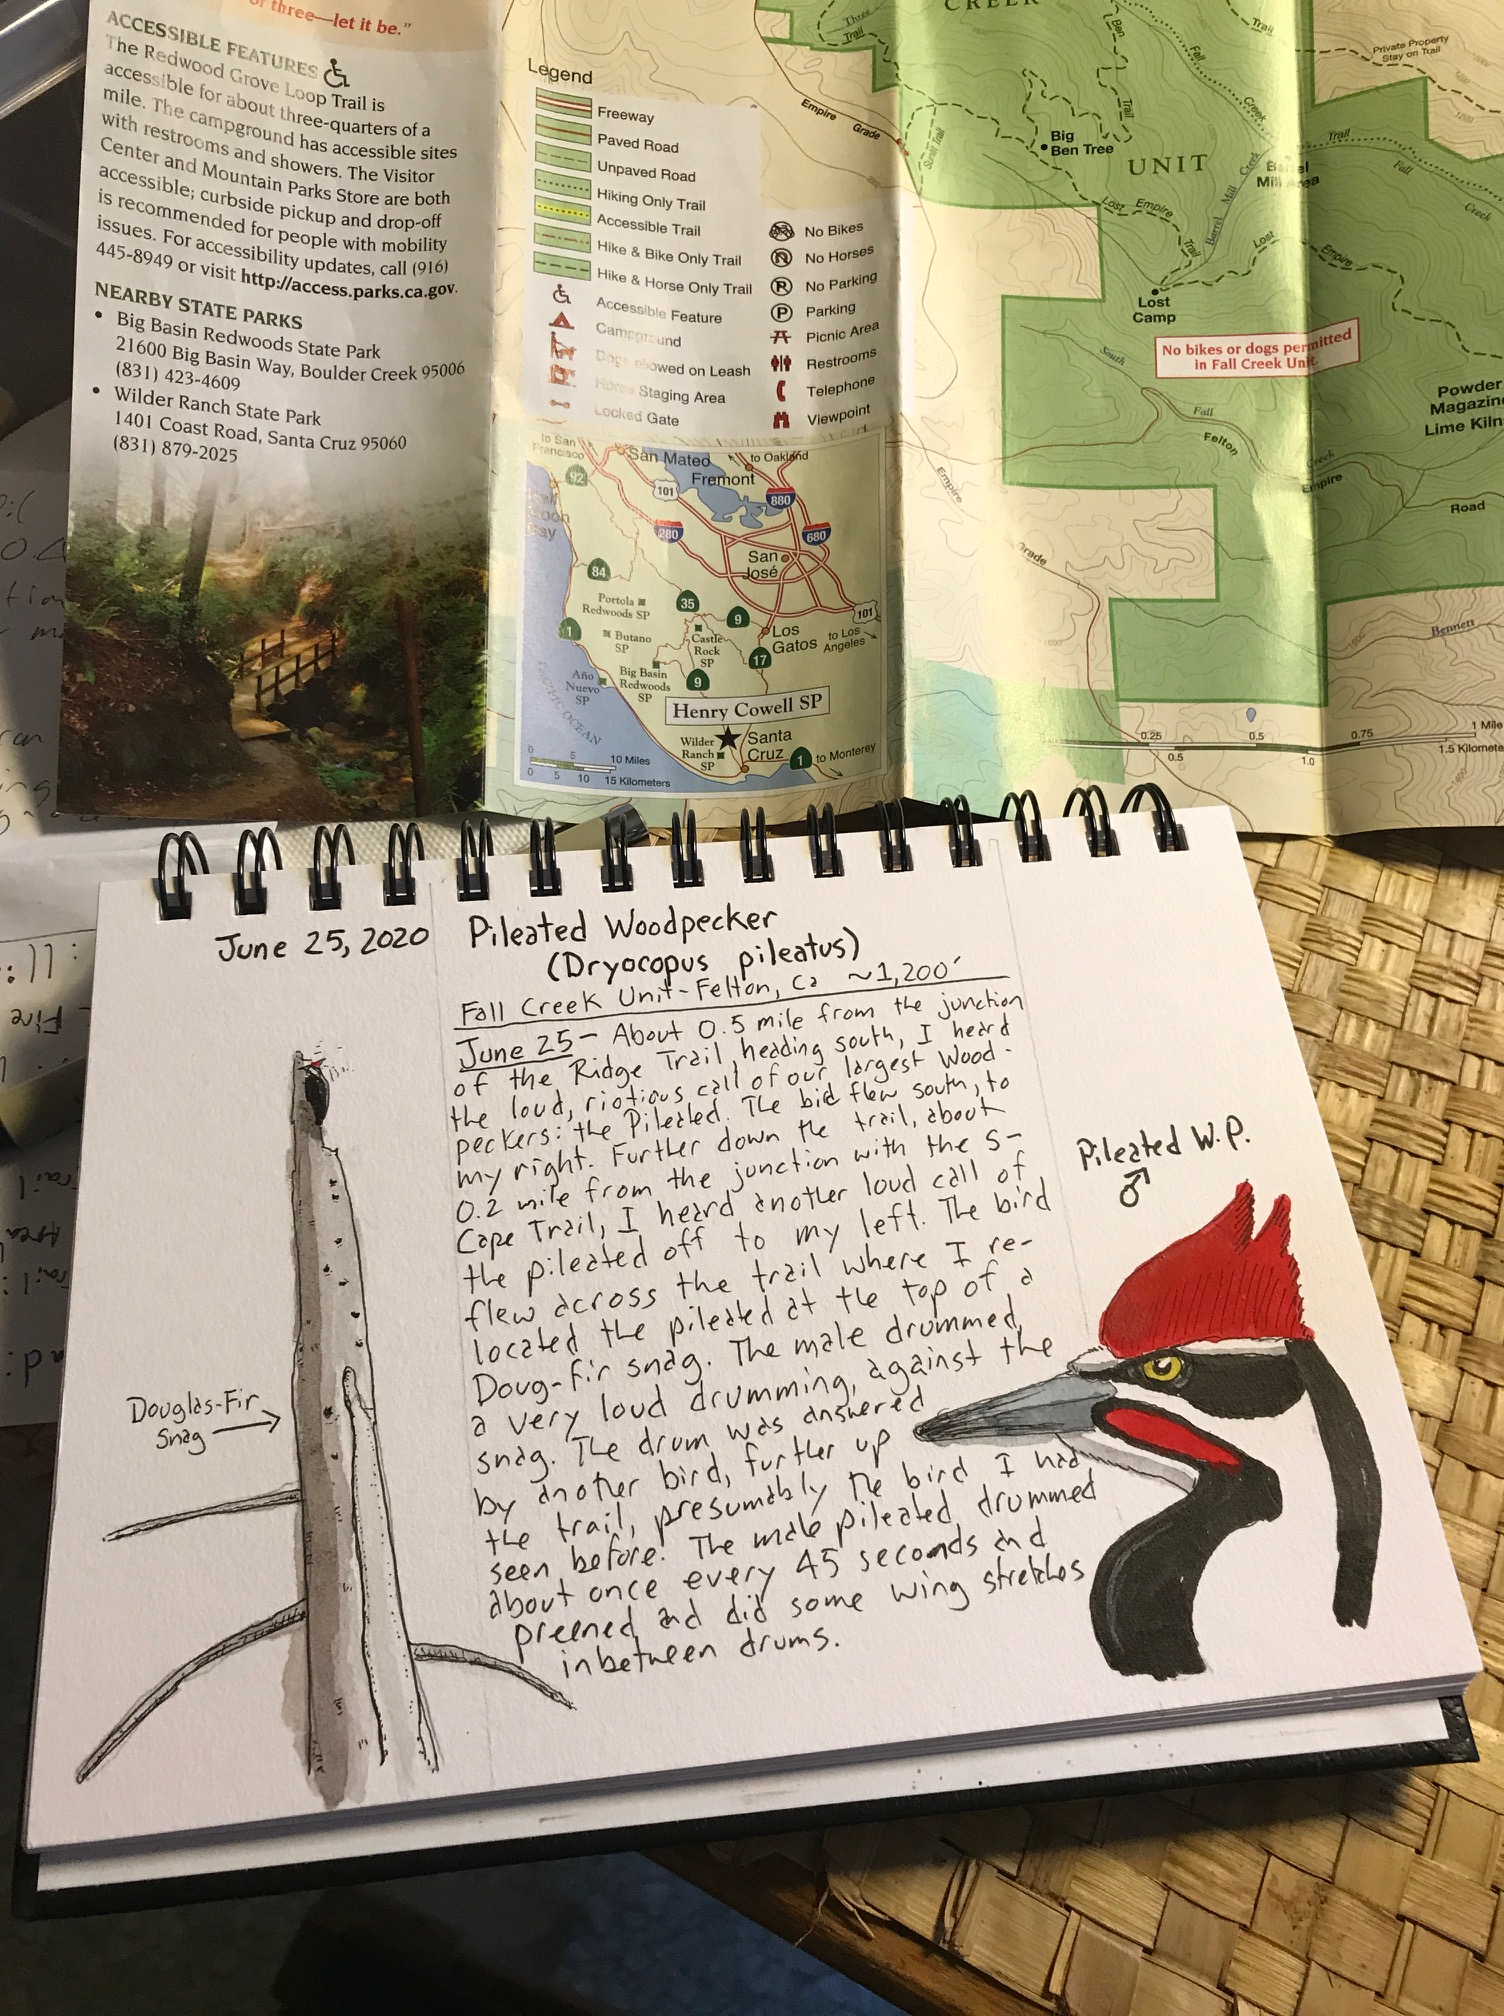 of three—let it be."
ACCESSIBLE FEATURES
The Redwood Grove Loop Trail is
accessible for about three-quarters of a
mile. The campground has accessible sites
with restrooms and showers. The Visitor
Center and Mountain Parks Store are both
accessible; curbside pickup and drop-off
is recommended for people with mobility
issues. For accessibility updates, call (916)
445-8949 or visit http://access.parks.ca.gov.
NEARBY STATE PARKS
• Big Basin Redwoods State Park
21600 Big Basin Way, Boulder Creek 95006
(831) 423-4609
• Wilder Ranch State Park
1401 Coast Road, Santa Cruz 95060
(831) 879-2025
Legend
Freeway
Paved Road
Unpaved Road
Hiking Only Trail
Accessible Trail
Hike & Bike Only Trail
Hike & Horse Only Trail
Accessible Feature
Campground
Dogs Allowed on Leash
Horse Staging Area
Locked Gate
No Bikes
No Horses
No Parking
P Parking
Picnic Area
Restrooms
Telephone
Viewpoint
to San
Francisco
San Mateo
to Oakland
Fremont
92
101
880
Half
Moon
Bay
280
680
San
José
84
Portola
Redwoods SP
35
9
101
1
Butano
SP
Castle
Rock
SP
Los
Gatos
to Los
Angeles
17
Big Basin
Redwoods
SP
9
Año
Nuevo
SP
PACIFIC OCEAN
Henry Cowell SP
Wilder
Ranch
SP
Santa
Cruz
1
to Monterey
0 5 10 Miles
0 5 10 15 Kilometers
CREEK
UNIT
Three
Trail
Ben
Trail
Fall
Creek
Trail
Private Property
Stay on Trail
Empire Grade
Summit Trail
Big
Ben Tree
Barrel
Mill Area
Trail
Fall
Creek
Lost Empire
Trail
Barrel Mill Creek
Lost
Empire
Lost
Camp
No bikes or dogs permitted
in Fall Creek Unit.
South
Fall
Creek
Felton
Empire
Road
Powder
Magazine
Lime Kiln
Empire
Grade
Bennett
0.25 0.5 0.75 1 Mile
0.5 1.0 1.5 Kilomete
June 25, 2020
Pileated Woodpecker
(Dryocopus pileatus)
Fall Creek Unit-Felton, Ca ~1,200'
June 25- About 0.5 mile from the junction
of the Ridge Trail, heading south, I heard
the loud, riotious call of our largest Wood-
peckers: the Pileated. The bid flew south, to
my right. Further down the trail, about
0.2 mile from the junction with the S-
Cape Trail, I heard another loud call of
the pileated off to my left. The bird
flew across the trail where I re-
located the pileated at the top of a
Doug-fir snag. The male drummed,
a very loud drumming, against the
snag. The drum was answered
by another bird, further up
the trail, presumably the bird I had
seen before. The male pileated drummed
about once every 45 seconds and
preened and did some wing stretches
inbetween drums.
Douglas-Fir
Snag
Pileated W.P.
♂